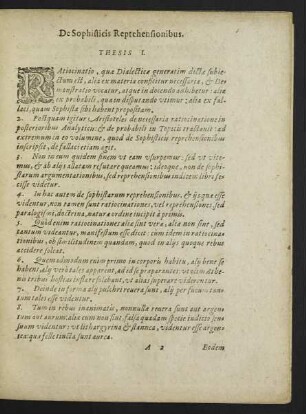 De Sophisticis Reprehensionibus.
THESIS I.
RAtiocinatio, quæ Dialecticæ generatim dictæ subie-
ctum est, alia ex materia conficitur necessaria, & De
monstratio vocatur, atque in docendo adhibetur: alia
ex probabili, quam disputando vtimur: alia ex fal-
laci, quam Sophistæ sibi habent propositam.
2. Postquam igitur Aristoteles de necessaria ratiocinatione in
posterioribus Analyticis: & de probabili in Topicis tractauit: ad
extremum in eo volumine, quod de Sophisticis reprehensionibus
inscripsit, de fallaci etiam agit.
3. Non in eum quidem finem vt eam vsurpemus: sed vt vite-
mus, & ab aliys allatam refutare queamus: ideoque, non de Sophi-
starum argumentationibus, sed reprehensionibus indicem libro fe-
cisse videtur.
4. In hac autem de sophistarum reprehensionibus, & ysquæ esse
videntur, non tamen sunt ratiocinationes, vel reprehensiones, sed
paralogismi, doctrina, naturæ ordine incipit à primis.
5. Quòd enim ratiocinationes aliæ sint veræ, aliæ non sint, sed
tantum videantur, manifestum esse dicit: cum idem in ratiocina
tionibus, ob similitudinem quandam, quod in alijs quoque rebus
accidere solet.
6. Quemadmodum enim primo incorporis habitu, alij bene se
habent, alij verò tales apparent,
7. Deinde in forma alij pulchri reuera sunt, alij per fucum tan-
tum tales esse videntur.
8. Tum in rebus inanimatis, nonnulla reuera sunt aut argen
tum aut aurum: alia cum non sint, falsa quadam specie inducto sen-
suum videntur: vt lithargyrina & stannea, videntur esse argen
tea: quæ felle tincta sunt aurea.
A 2 Eodem